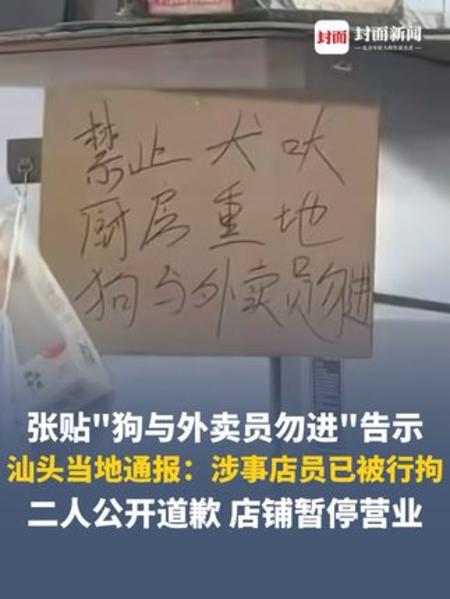 封面 封面新闻
禁止犬吠
厨房重地
狗与外卖员勿进
张贴"狗与外卖员勿进"告示
汕头当地通报：涉事店员已被行拘
二人公开道歉 店铺暂停营业